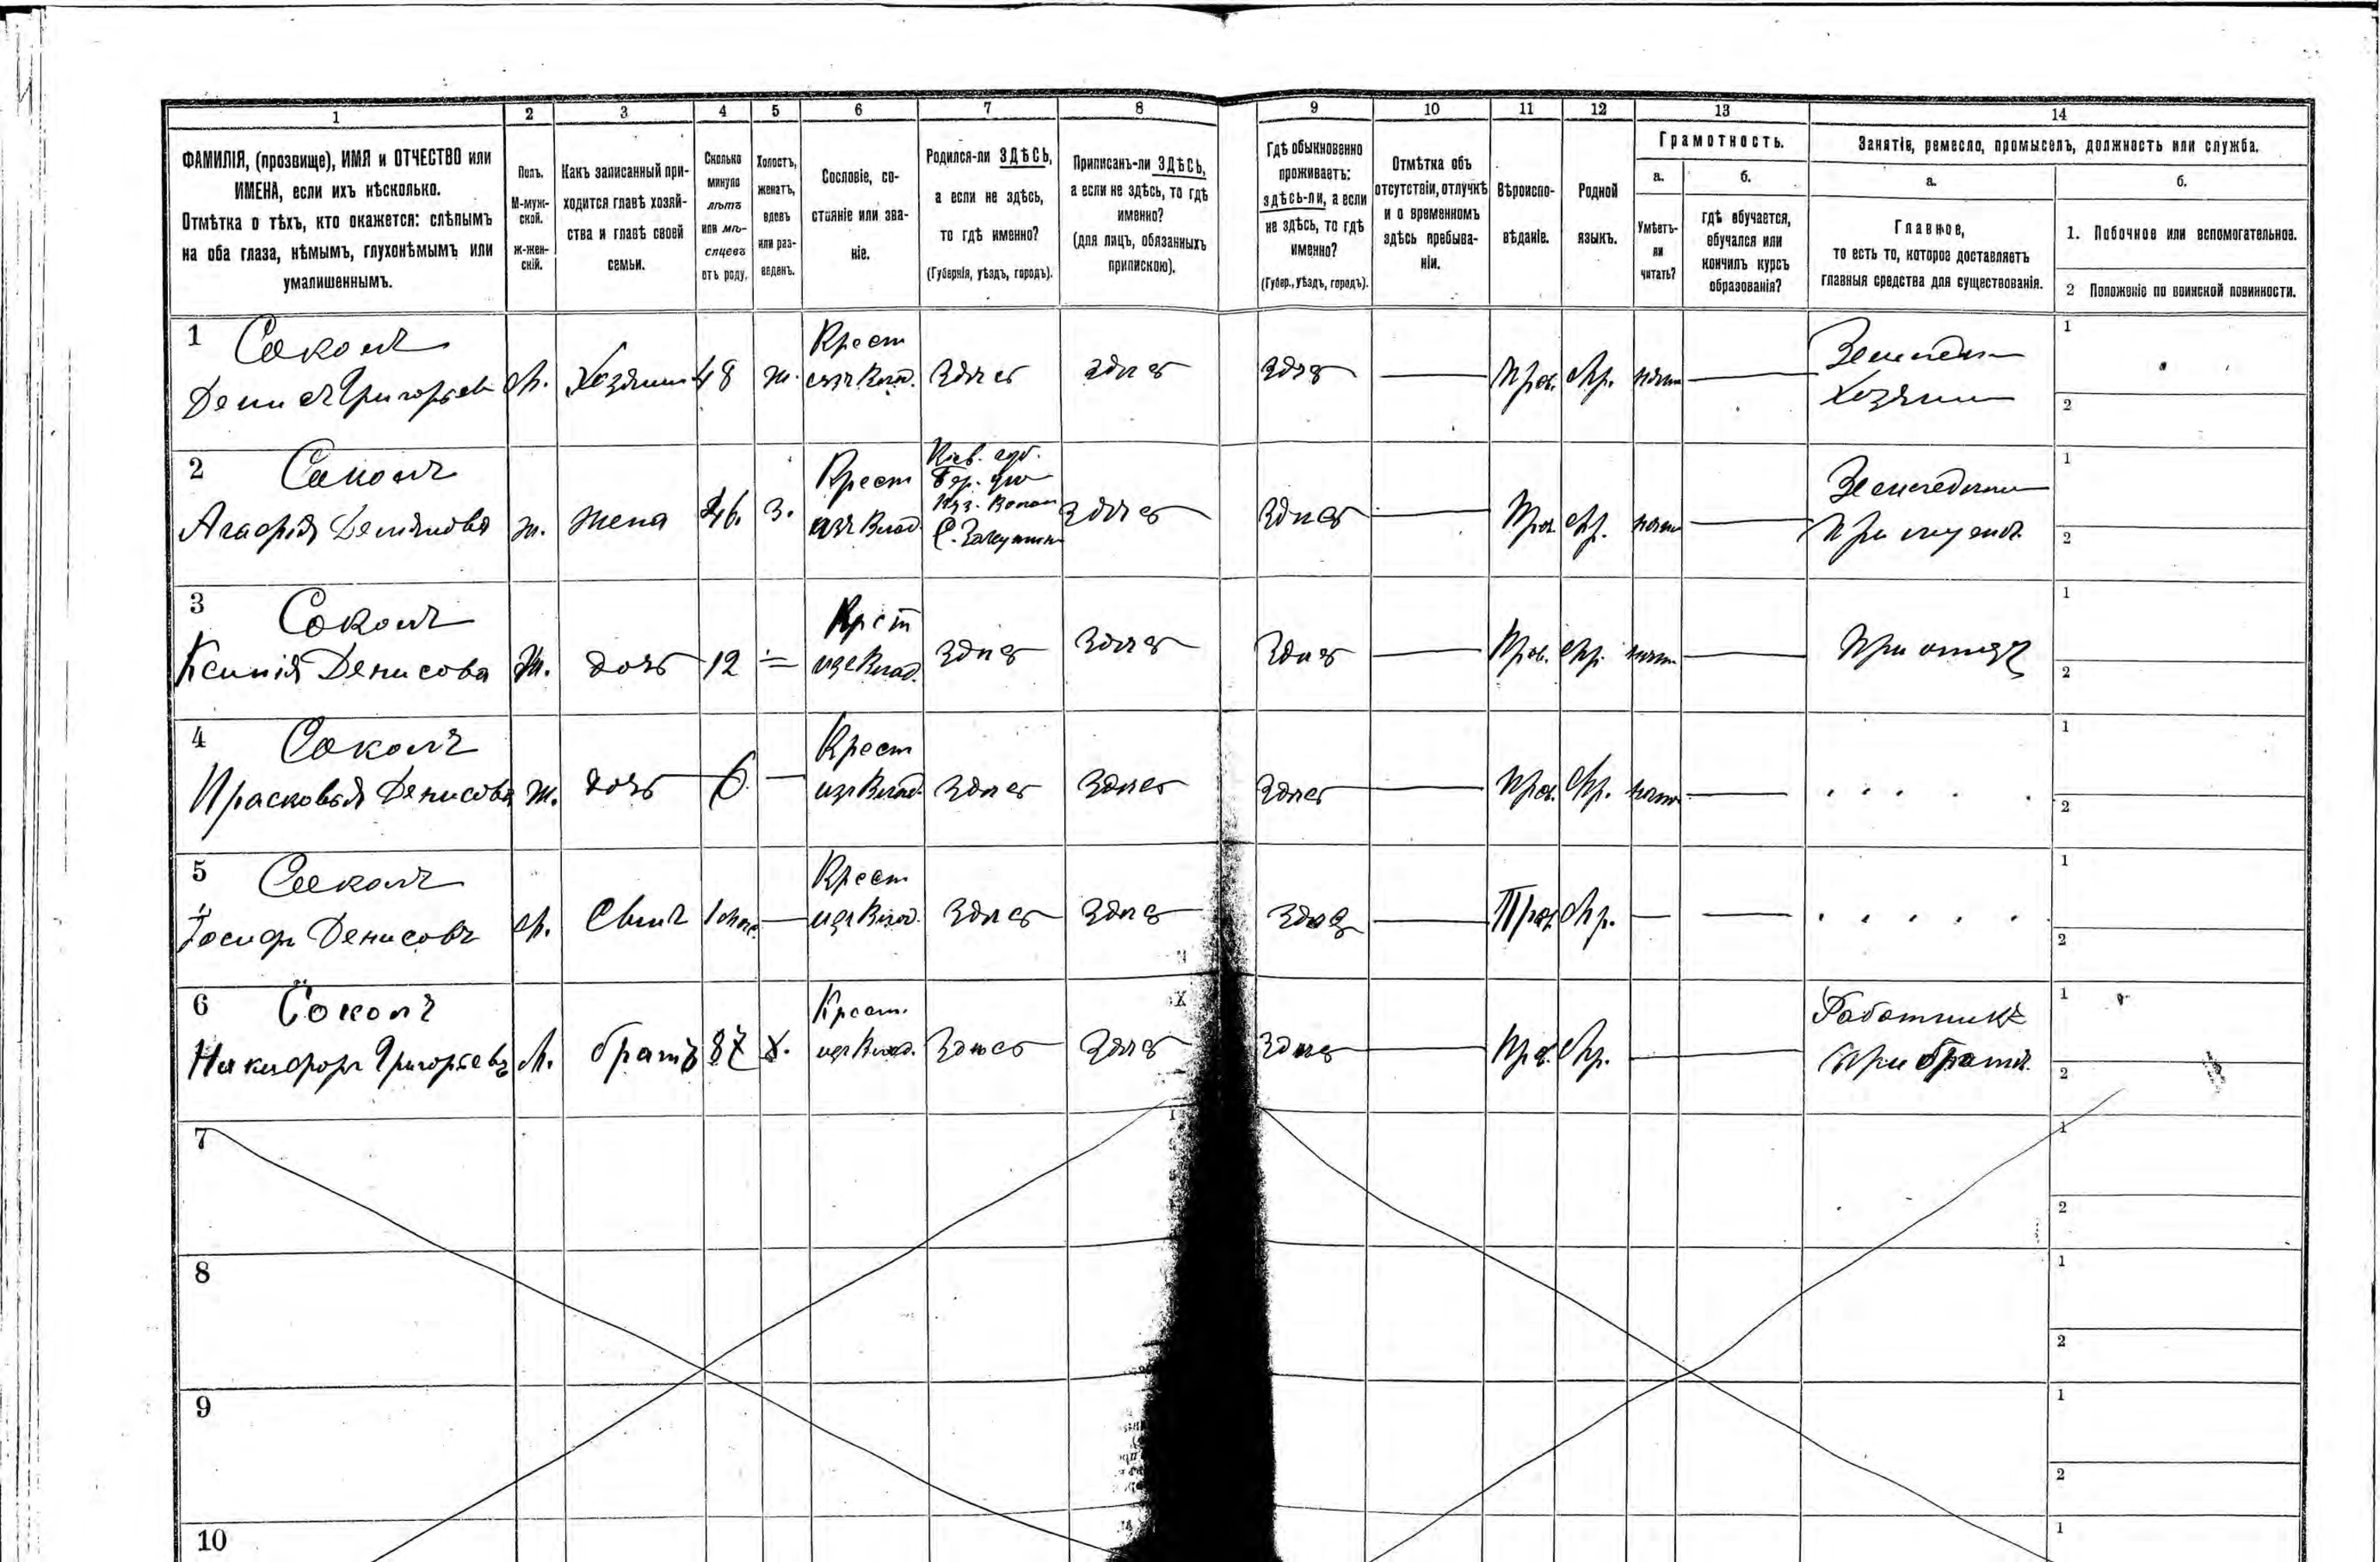 1 2 3 4 5 6 7 8 9 10 11 12 13 14
ФАМИЛІЯ, (прозвище), ИМЯ и ОТЧЕСТВО или
ИМЕНА, если ихъ нѣсколько.
Отмѣтка о тѣхъ, кто окажется: слѣпымъ
на оба глаза, нѣмымъ, глухонѣмымъ или
умалишеннымъ.
Полъ.
М-муж-
ской.
Ж-жен-
скій.
Какъ записанный при-
ходится главѣ хозяй-
ства и главѣ своей
семьи.
Сколько
минуло
лѣтъ
или мѣ-
сяцевъ
отъ роду.
Холостъ,
женатъ,
вдовъ
или раз-
веденъ.
Сословіе, со-
стояніе или зва-
ніе.
Родился-ли ЗДѢСЬ,
а если не здѣсь,
то гдѣ именно?
(Губернія, уѣздъ, городъ).
Приписанъ-ли ЗДѢСЬ,
а если не здѣсь, то гдѣ
именно?
(для лицъ, обязанныхъ
припискою).
Гдѣ обыкновенно
проживаетъ:
здѣсь-ли, а если
не здѣсь, то гдѣ
именно?
(Губер., уѣздъ, городъ).
Отмѣтка объ
отсутствіи, отлучкѣ
и о временномъ
здѣсь пребыва-
ніи.
Вѣроиспо-
вѣданіе.
Родной
языкъ.
Грамотность.
а.
Умѣетъ-
ли
читать?
б.
гдѣ обучается,
обучался или
кончилъ курсъ
образованія?
Занятіе, ремесло, промыселъ, должность или служба.
а.
Главное,
то есть то, которое доставляетъ
главныя средства для существованія.
б.
1. Побочное или вспомогательное.
2 Положеніе по воинской повинности.
1 Соколъ Крест Земледѣл 1
Денисъ Григорьев М. Хозяинъ 48 ж. изъ Влад. Здѣсь здѣсь здѣсь — Прав. Мр. нѣт — Хозяин 2
2 Соколъ Крест Кіев. губ. Земледѣл 1
Агафія Демянова ж. жена 46. З. изъ Влад. здѣсь здѣсь — Прав. Мр. нѣт — При мужѣ 2
3 Соколъ Крст 1
Ксинія Денисова Ж. дочь 12 — изъ Влад. здѣсь здѣсь здѣсь — Прав. Мр. нѣт — При отцѣ 2
4 Соколъ Крест 1
Прасковья Денисова ж. дочь 6 — изъ Влад. здѣсь здѣсь здѣсь — Прав. Мр. нѣт — 2
5 Соколъ Крест 1
Іосифъ Денисовъ М. Сынъ — изъ Влад. здѣсь здѣсь здѣсь — Прав. Мр. — — 2
6 Соколъ Крест. Работникъ 1
Никифоръ Григорьевъ М. братъ 37 х. изъ Влад. Здѣсь здѣсь здѣсь — Прав. Мр. — При братѣ 2
7 1
2
8 1
2
9 1
2
10 1